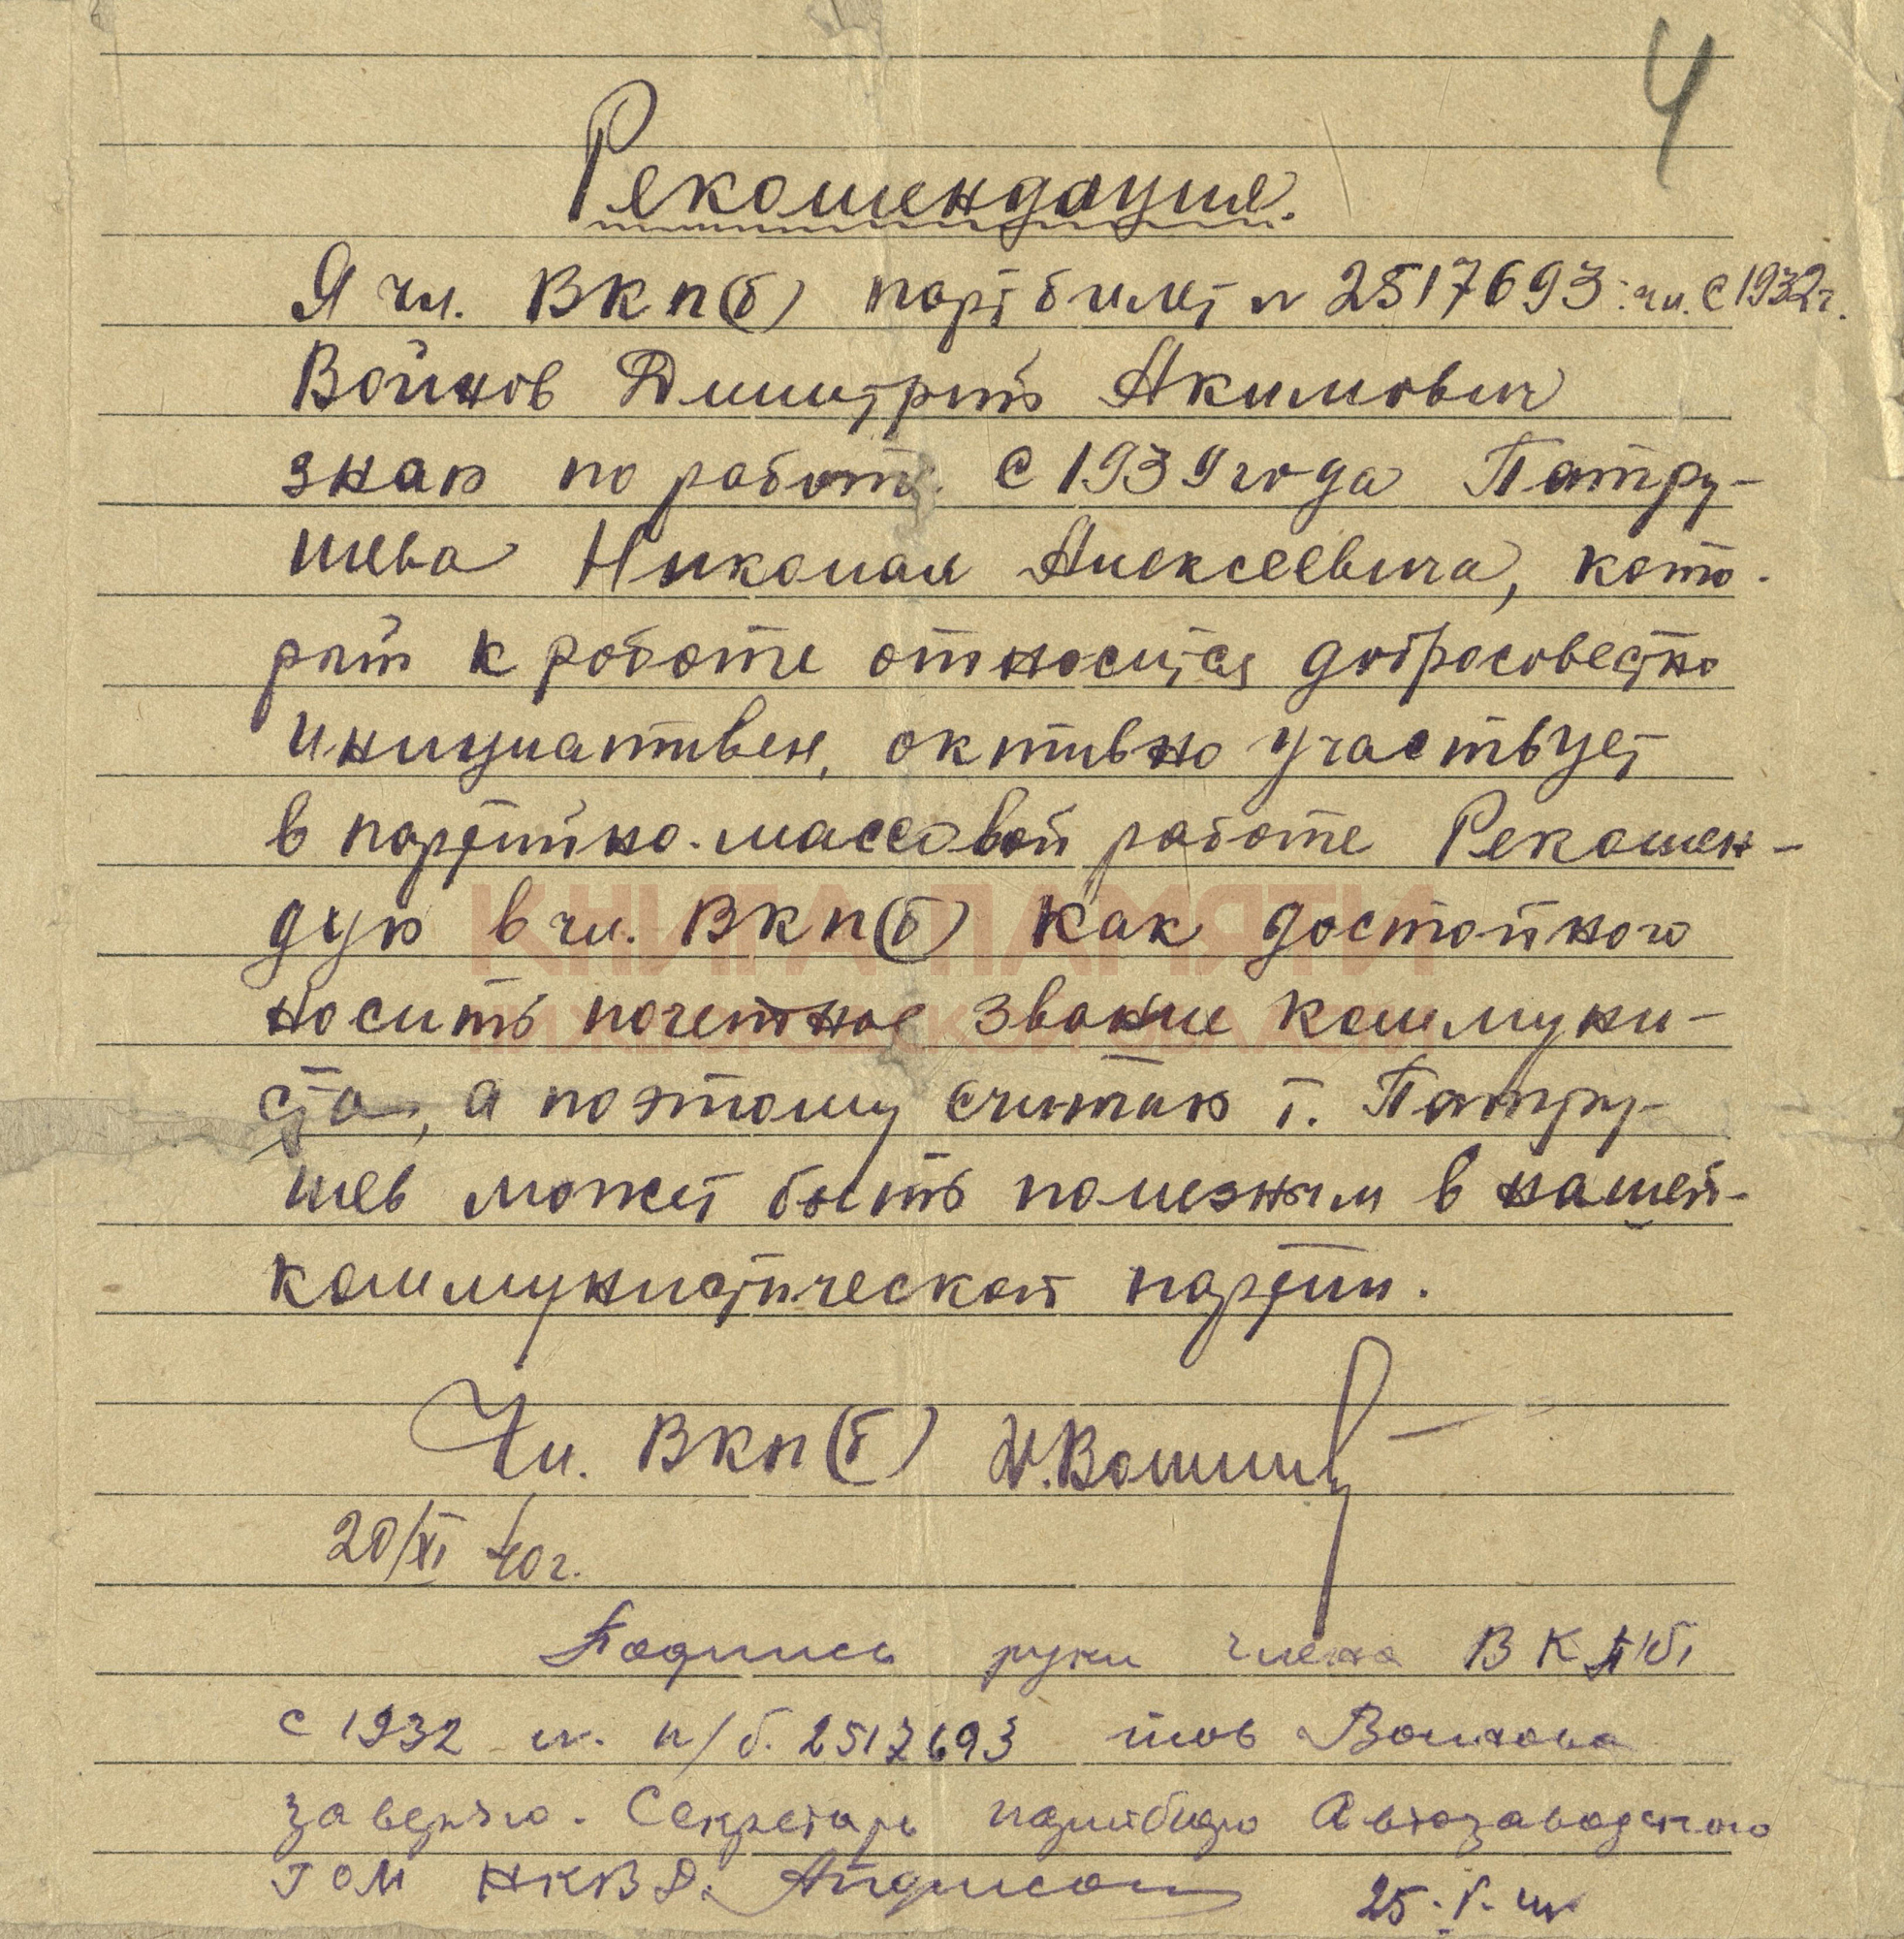 4
Рекомендация.
Я чл. ВКП(б) партбилет № 2517693 чл. с 1932 г.
Войнов Дмитрий Акимович
знаю по работе с 1939 года Патру-
шева Николая Алексеевича, кото-
рый к работе относится добросовестно
инициативен, активно участвует
в партийно-массовой работе Рекомен-
дую в чл. ВКП(б) как достойного
носить почетное звание коммуни-
ста, а поэтому считаю т. Патру-
шев может быть полезным в нашей
коммунистической партии.
Чл. ВКП(б)
20/XI 40 г.
Подпись руки члена ВКП(б)
с 1932 п/б. 2517693 тов Войнова
заверяю. Секретарь партбюро Автозаводского
ГОМ НКВД.
25.
КНИГА ПАМЯТИ
НИЖЕГОРОДСКОЙ ОБЛАСТИ